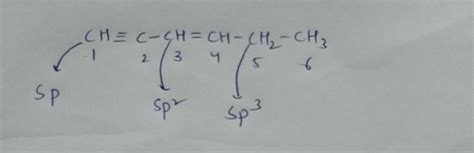 CH≡C-CH=CH-CH₂-CH₃
1 2 3 4 5 6
Sp Sp² Sp³